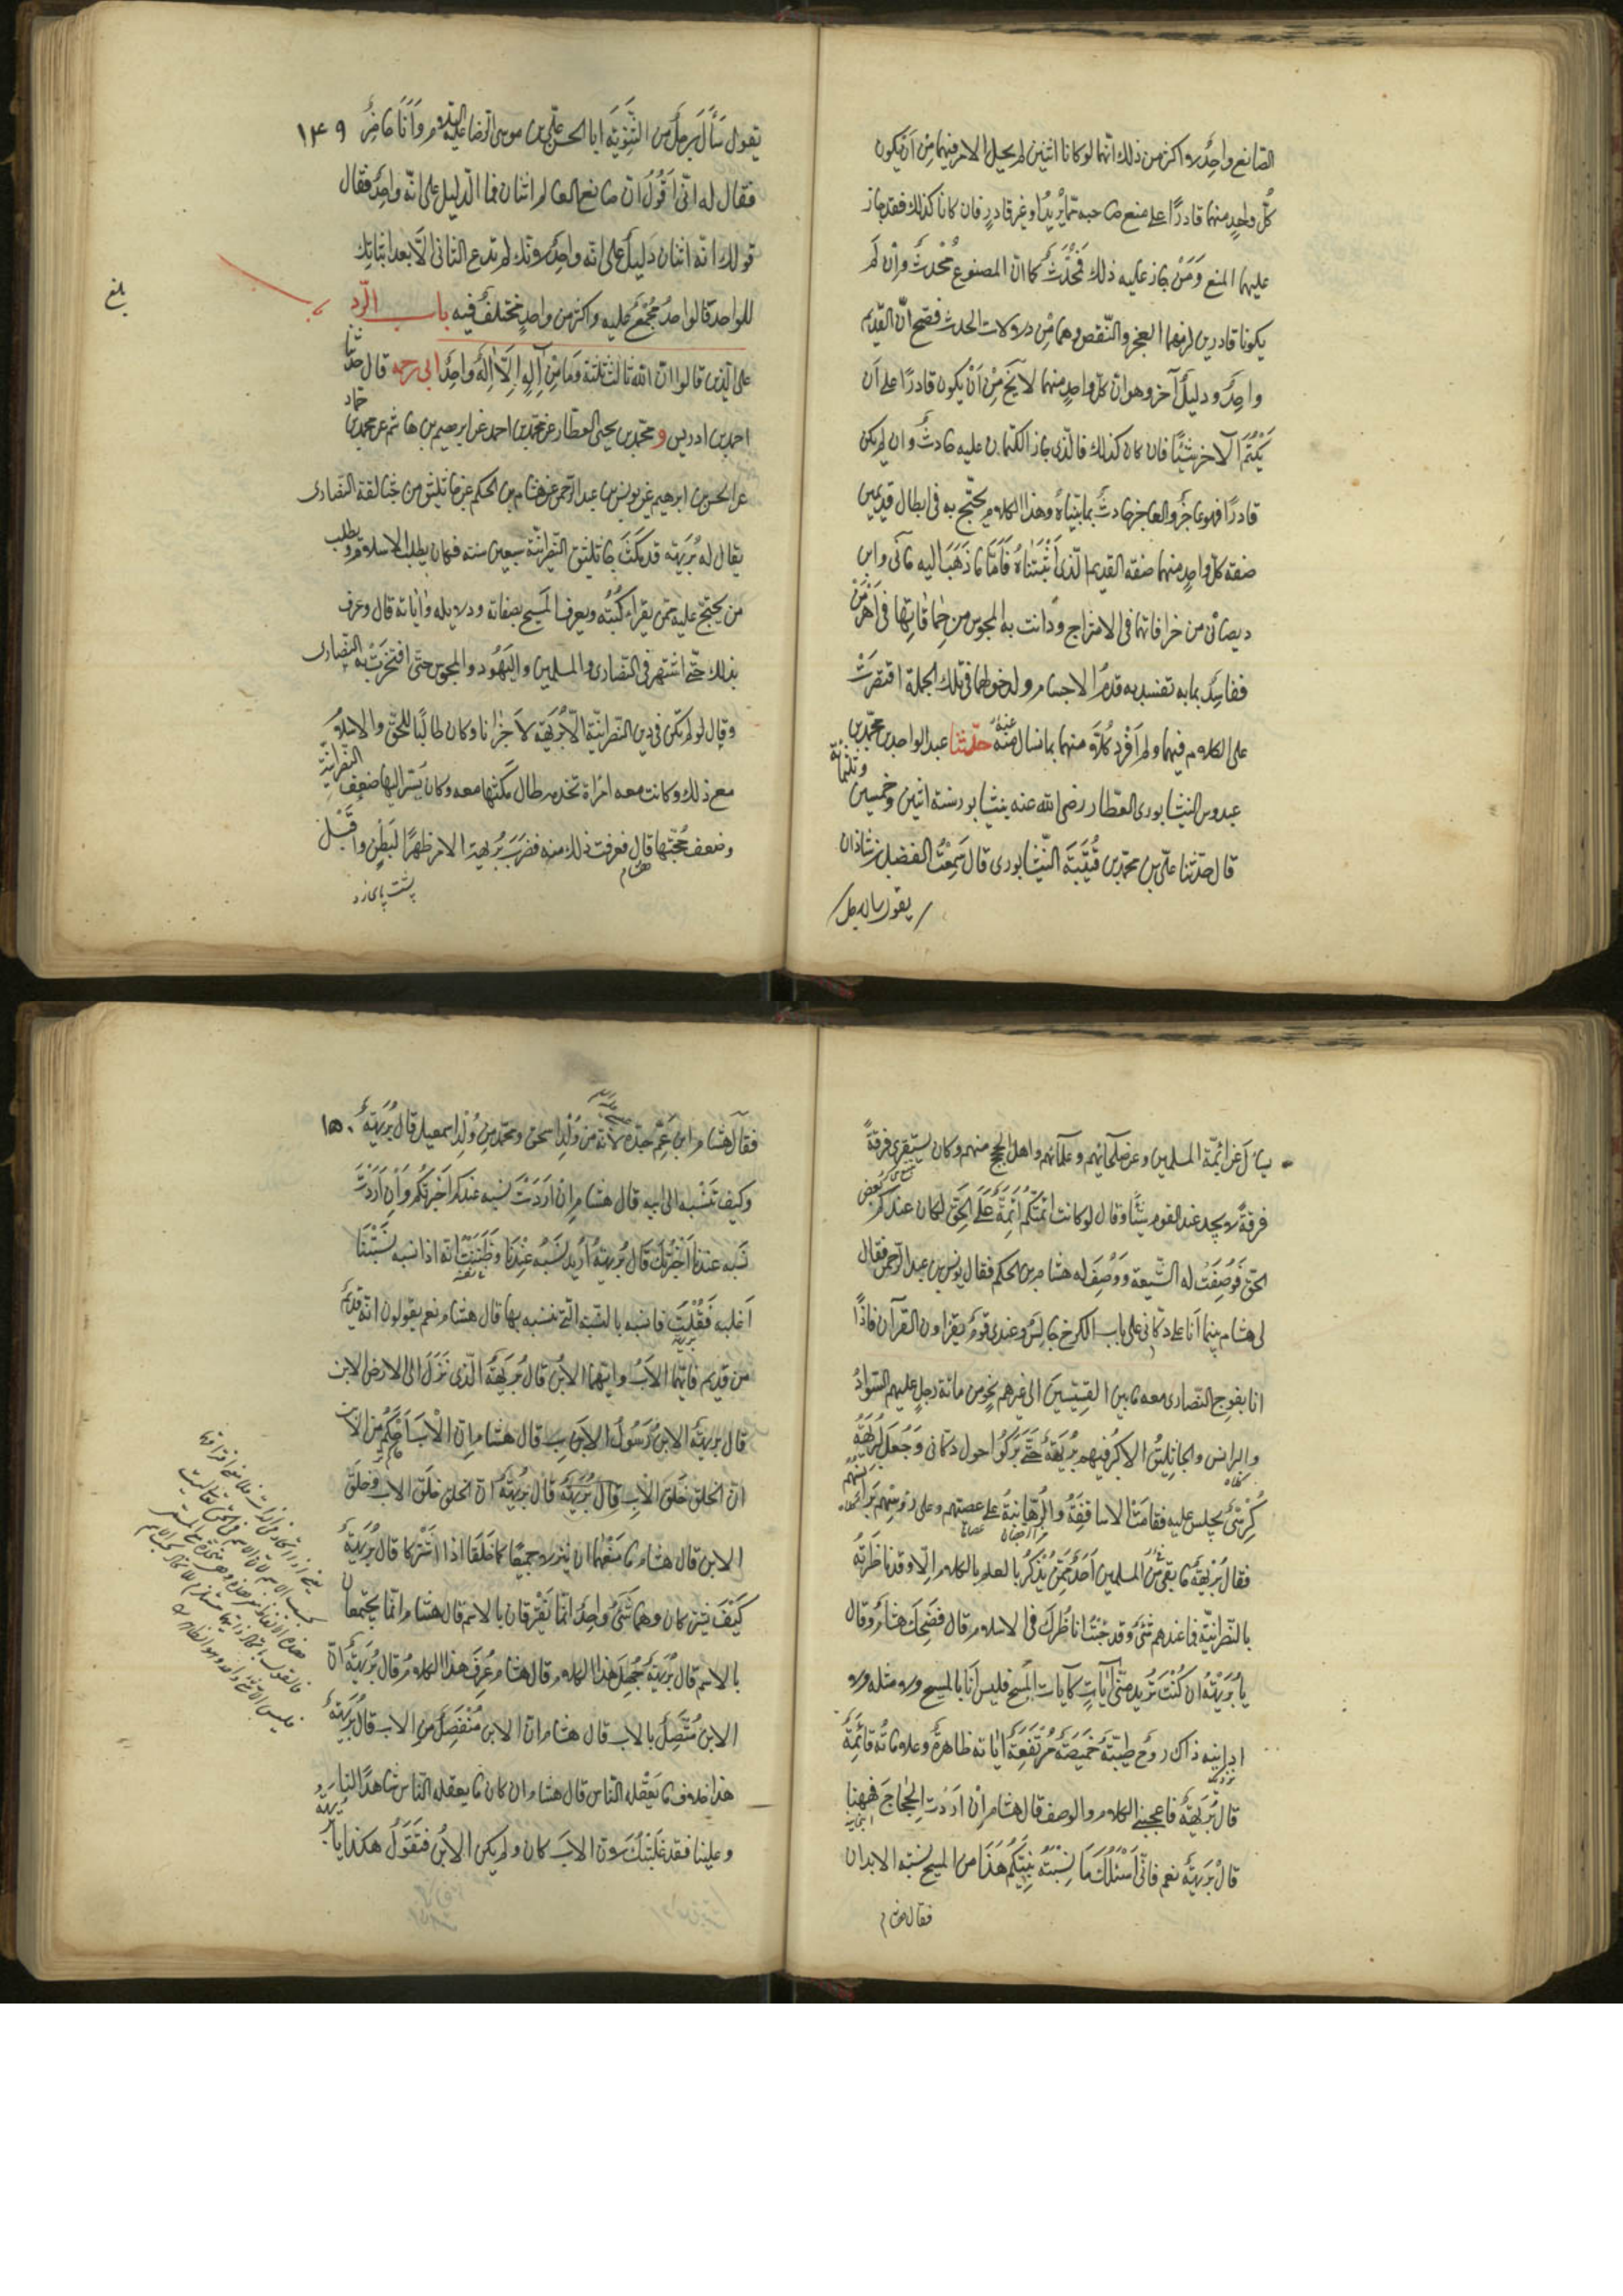 الصانع واحد لا اكثر من ذلك انهما لو كانا اثنين لم يخل الامر فيهما مِنْ اَنْ يكون
كُلّ واحدٍ منهما قادرًا على منع صاحبه مما يُريدُ او غير قادرٍ فان كانا كذلك فقد جاز
عليهما المنع وَمَنْ جاز عليه ذلك فَمُحْدَثٌ كما ان المصنوع مُحْدثٌ وان لَمْ
يكونا قادرين لزمهما العجز والنقص وهما مِنْ دلالات الحدث فصح انّ القديم
واحِدٌ ودليلٌ آخر وهو ان كلّ واحدٍ منهما لا يَخ مِنْ اَنْ يكون قادرًا على اَن
يَكْتُمَ الآخر شَيْئًا فان كان كذلك فالّذى جاز الكتمان عليه حادثٌ وان لم يكن
قادرًا فهو عاجزٌ والعاجز حادثٌ بما بيّناهُ وهذا الكلام يحتج به فى ابطال قديمين
صفة كلّ واحدٍ منهما صفة القديم الّذى اَثْبَتْناهُ فَاَمّا ما ذَهَبَ اليه مانى وابن
ديصان من خرافاتهما فى الامتزاج ودانت به المجوس من حِماقاتِها فى اَهْرَمَنْ
ففاسِدٌ بما به تفسد به قدمُ الاجسام ولدخولهما فى تلك الجملة اقتصَرْتُ
على الكلام فيهما ولم اُفْرِد كُلاًّ منهما بما نسال عنه منه حدّثنا عبد الواحد بن محمّد بن
عبدوس النيشابورى العطّار رضى الله عنه بنيشابور سنة اثنين وخمسين وثلثمائة
قال حدّثنا علىّ بن محمّد بن قُتَيْبَة النّيْشابورى قال سَمِعْتُ الفضل بن شاذان
يقول سال رجل
يقول سَأَلَ رجلٌ من الثَّنَوِيّة ابا الحسن علىّ بن موسى الرضا عليه السلام وَاَنَا حاضِرٌ
١٤٩
فقال له انّى اَقُولُ انّ صانع العالم اثنان فما الدّليل على انّه واحِدٌ فقال
قولك انّه اثنان دَليلٌ على انه واحِدٌ لانّك لم تدع الثانى الّا بعد اثباتِك
للواحد فالواحدُ مُجْمَعٌ عليه واكثر من واحدٍ مختلفٌ فيه باب الرّد
بلغ
على الّذين قالوا انّ الله ثالث ثلثة وَما مِنْ اِلهٍ اِلّا اِلهٌ واحِدٌ ابى رحمه قال حدّثنا
احمد بن ادريس و محمّد بن يحيى العطّار عن محمّد بن احمد عن ابرهيم بن هاشم عن محمّد بن حماد
عن الحسن بن ابرهيم عن يونس بن عبد الرّحمن عن هشام بن الحكم عن جاثليق من جثالقة النّصارى
يقال له بُرَيهة قد مَكَثَ جاثليق النّصرانيّة سبعين سنة فكان يطلب الاسلام ويطلب
من يحتجّ عليه ممّن يقراء كُتُبَهُ ويعرف المسيح بصفاته ودلايله واٰياته قال وعرف
بذلك حتّى اشتهر فى النّصارى والمسلمين واليَهُود والمجوس حتّى افتخَرَتْ به النّصارى
وقال لو لم تكن فى دين النّصرانيّة الّا بُرَيهة لاَجْزانا وكان طالبًا للحقّ والاسلام
مع ذلك وكانت معه امراة تخدمه طال مكثها معه وكان يَسّر اليها ضعف النّصرانيّة
وضعف حُجّتها قال فعرفت ذلك منه فضَرَبَ بُرَيهة الامر ظهرًا لبَطْنٍ واَقْبَلَ
هشام
پشت پاى زد
يسأل عن ائمّة المسلمين وعن صلحائهم وعلمائهم واهل الحجى منهم وكان يستقرى فرقةً
فرقةً لا يجد عند القوم شَيْئًا وقال لو كانت ائمّتكُم اَئمّةً عَلَى الحَقّ لكان عندكم بعض
الحقّ فَوُصِفَتْ له الشّيعة وَوُصِفَ له هشام بن الحكم فقال يونس بن عبد الرّحمن فقال
لى هشام بينما اَنَا على دكّانى على باب الكرخ جالِسٌ وعندى قومٌ يقراون القرآن فاذًا
انا بفوج النّصارى معه ما بين القِسّيسين الى غيرهم نحوٍ من مائة رجلٍ عليهم السّوادُ
والبرانس والجاثليق الاكبر فيهم بُرَيهة حَتّى بَرَكُوا حول دكّانى وَجُعِلَ لبُرَيهة
كُرْسِىّ يجلس عليه فقامَت الاساقِفَةُ والرّهابنةُ على عصيّهم وعلى رؤسهم برانسهم
فقال بُرَيهة ما بقى مِنَ المسلمين اَحَدٌ مِمّن يُذْكَرُ بالعلم بالكلام الّا وقد ناظرتُهُ
بالنّصرانيّة فما عندهم شَىْءٌ وقد جئتُ اناظُرك فى الاسلام قال فضَحِكَ هشام وقال
يا بُرَيْهة ان كُنْتَ تُريد منّى اٰياتٍ كآيات المسيح فليس اَنَا بالمسيح ولا مثله ولا
اُدانيه ذاك روحٌ طيّبَةٌ خَميصَةٌ مُرْتَفِعَةٌ اٰياته ظاهرةٌ وعلاماتُهُ قائمَةٌ
قال بُرَيهة فاعجبنى الكلام والوصف قال هشام اِنْ اَرَدْتَ الحِجاج فههنا
قال بُرَيهة نعم فانّى اَسْئَلُكَ ما نِسْبَةُ نبيّكُم هَذا من المسيح نسبة الابدان
فقال هشام
فقال هشام ابن عمّ جدّه لانّه من وُلْدِ اسحق ومحمّد من وُلْدِ اسمعيل قال بُرَيهة
١٥٠
وكيف تَنْسِبُه الى ابيه قال هشام ان اَرَدْتَ نسبه عندكم اخبرتُكُم وَاِنْ اَرَدْتَ
نسَبه عندنا اَخْبَرْتُكَ قال بُرَيهة اُريد نَسَبَهُ عِنْدنا وظَنَنْتُ انّه اذا نسبه نسْبَتَنَا
اَغلبه قُلْتُ فانسبه بالنسبة التى ننسبه بها قال هشام نعم يقولون انّه قديم
من قديم فايّهما الاَبُ وايّهما الابن قال بُرَيهة الّذى نَزَلَ الى الارض الابن
قال بريهة الابن رَسُولُ الاَبِ قال هشام انّ الاَبَ اَحْكَمُ من الابن
انّ الخلق خَلق الاَبِ قال بُرَيهة انّ الخلق خَلق الاب وخلق
الابن قال هشام ما مَنَعهما ان ينزلا جميعًا كما خلَقا اذا اشتركا قال بُرَيهة
كَيْفَ يشتركان وهما شَىْءٌ واحِدٌ انّما يَفترقان بالاسم قال هشام انّما يجتمعان
بالاسم قال بُرَيهة جُهِلَ هذا الكلام قال هشام عُرِفَ هذا الكلامُ قال بُرَيهة انّ
الابن مُتَّصِلٌ بالاب قال هشام انّ الابن مُنْفَصِلٌ من الاب قال بُرَيهة
هذا خلاف ما يَعْقله النّاس قال هشام ان كان ما يعقله النّاس شاهدًا لنا
وعلينا فقد غلَبْتُكَ لانّ الاَبَ كان ولم يكن الابن فتَقُول هكذا يا بريهة